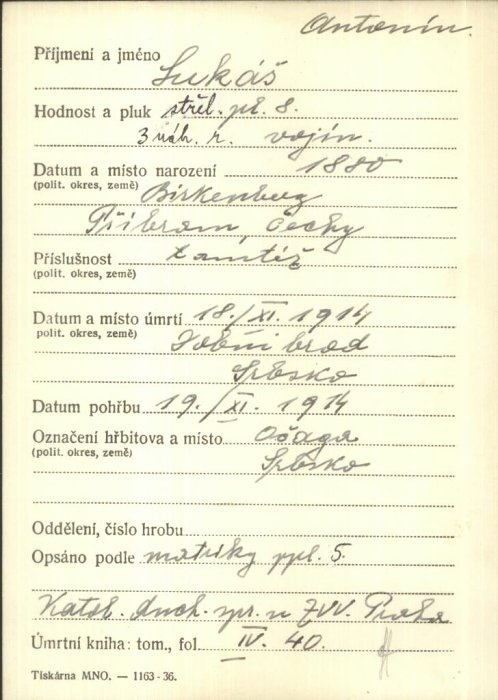 Antonín.
Příjmení a jméno Lukáš
Hodnost a pluk střel. pl. 8.
3 náh. r. vojín.
Datum a místo narození 1880
(polit. okres, země) Birkenberg
Příbram, Čechy
Příslušnost tamtéž
(polit. okres, země)
Datum a místo úmrtí 18./XI. 1914
(polit. okres, země) brod
Srbsko
Datum pohřbu 19./XI. 1914
Označení hřbitova a místo Očaga
(polit. okres, země) Srbsko
Oddělení, číslo hrobu
Opsáno podle matriky ppl. 5.
Katol. duch. spr. u ZVV. Praha
Úmrtní kniha: tom., fol. IV. 40.
Tiskárna MNO. — 1163-36.